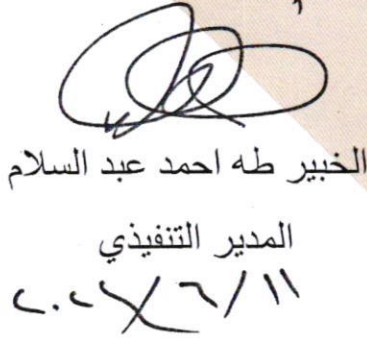 الخبير طه احمد عبد السلام
المدير التنفيذي
٢٠٢٤/٦/١١